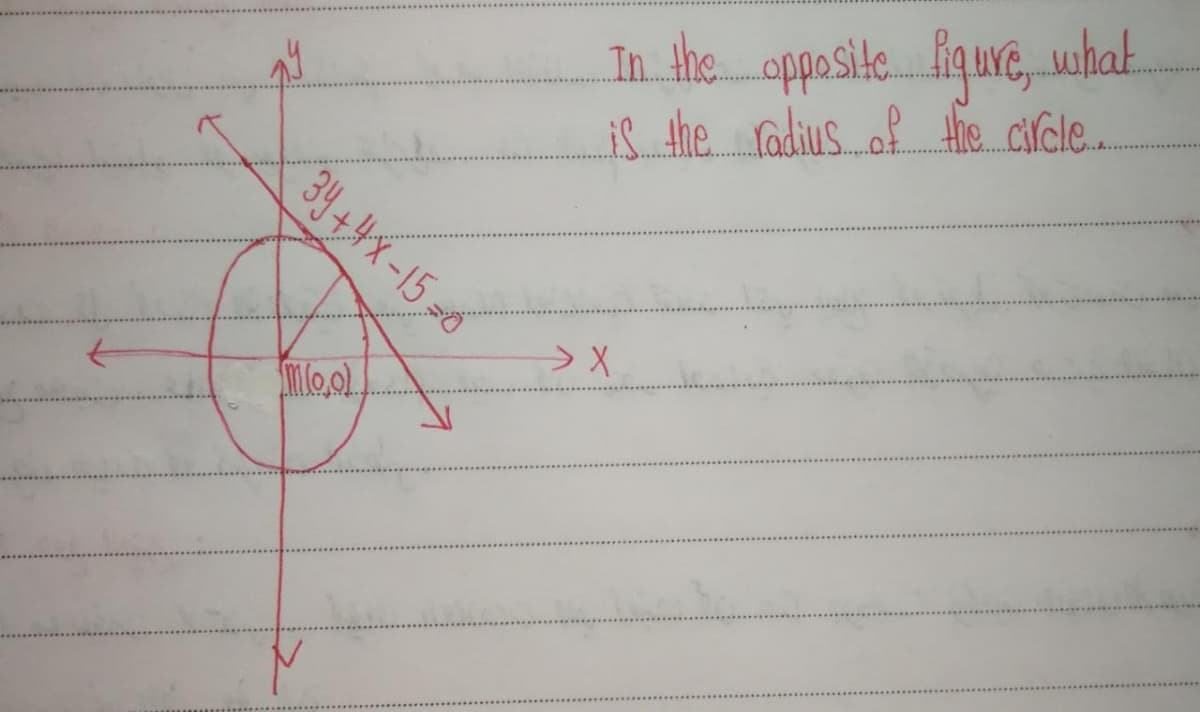 In the opposite figure, what
is the radius of the circle.
y
3y+4x-15=0
X
M(0,0)